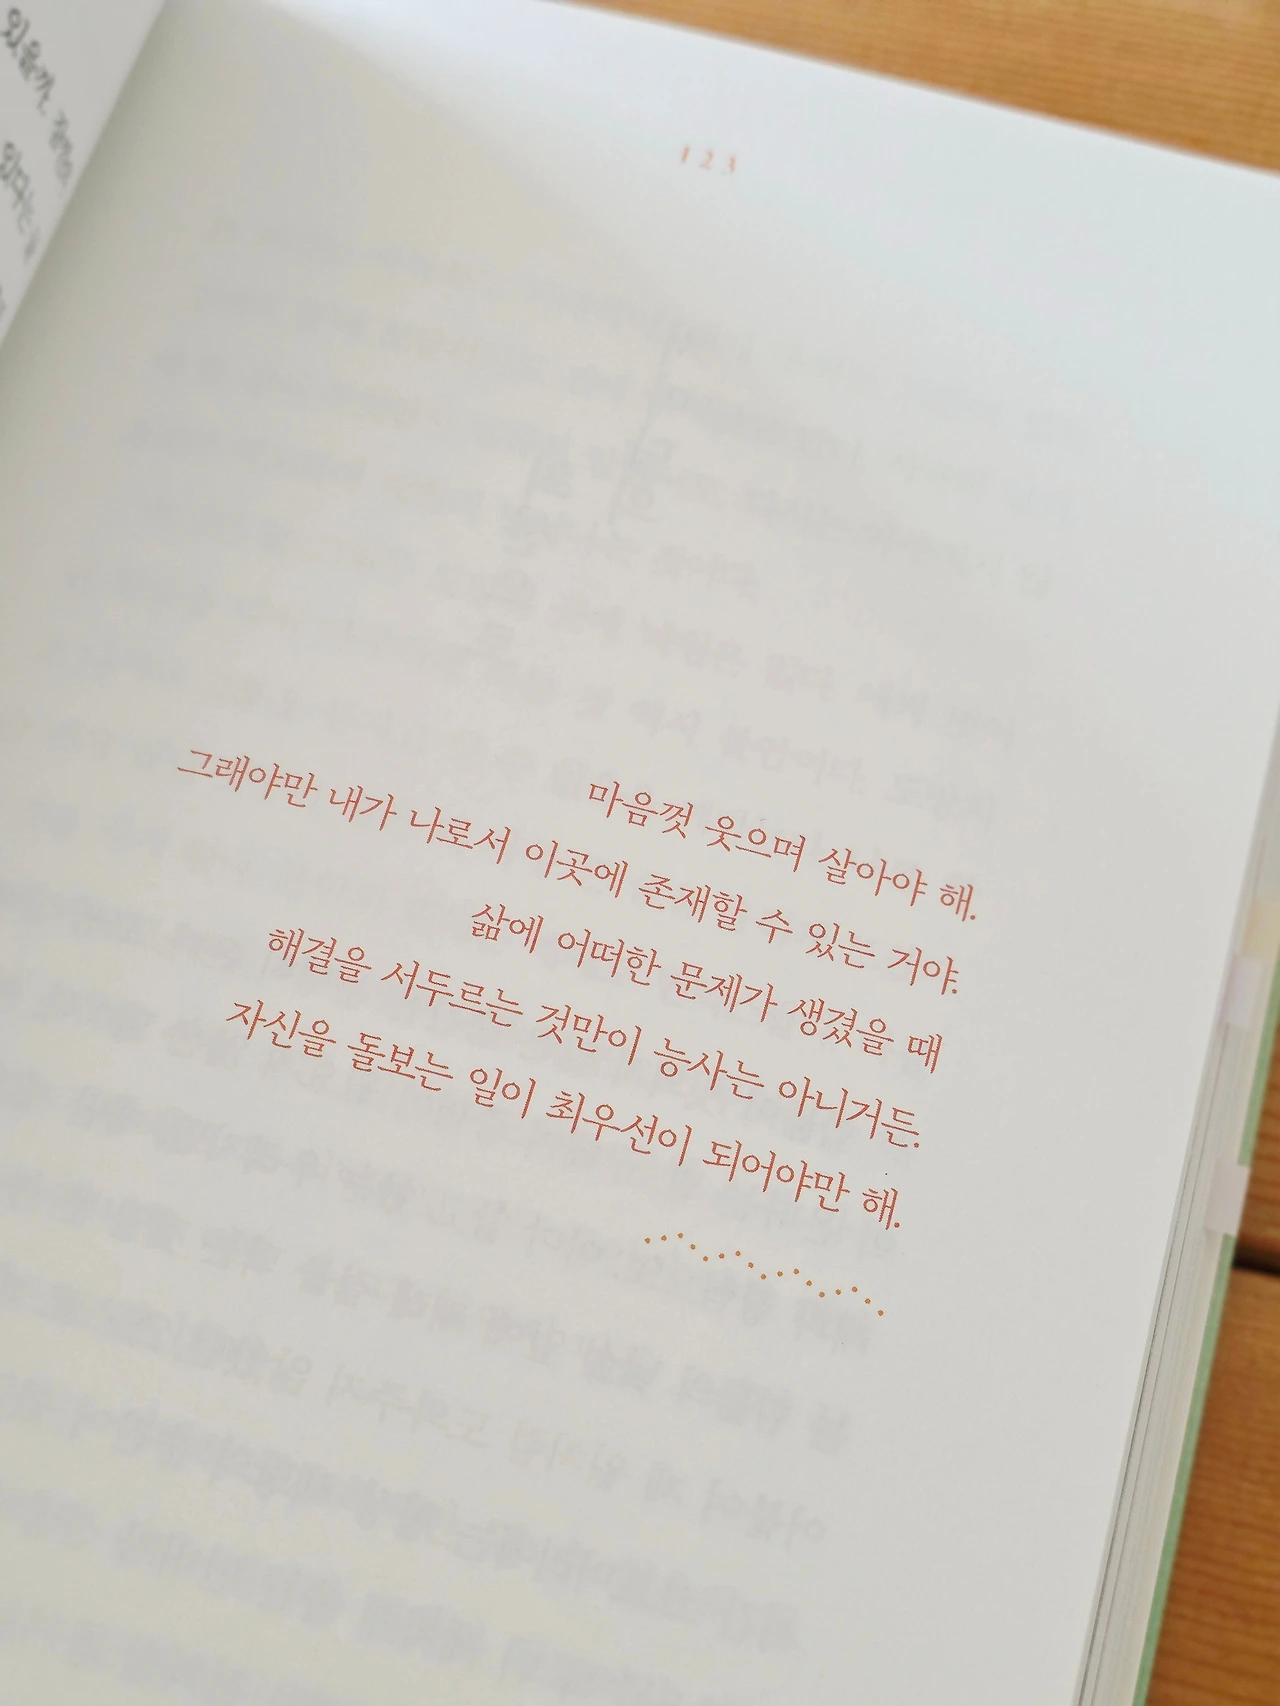 있을까.
있다는
123
마음껏 웃으며 살아야 해.
그래야만 내가 나로서 이곳에 존재할 수 있는 거야.
삶에 어떠한 문제가 생겼을 때
해결을 서두르는 것만이 능사는 아니거든.
자신을 돌보는 일이 최우선이 되어야만 해.